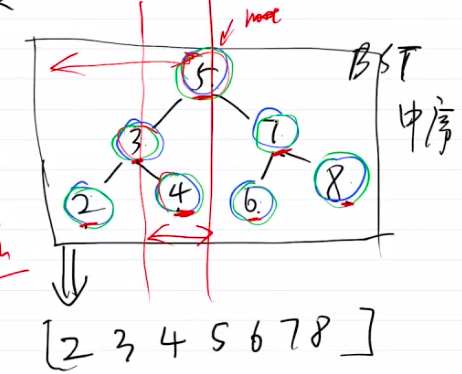 BST
中序
5
3 7
2 4 6 8
[2 3 4 5 6 7 8]